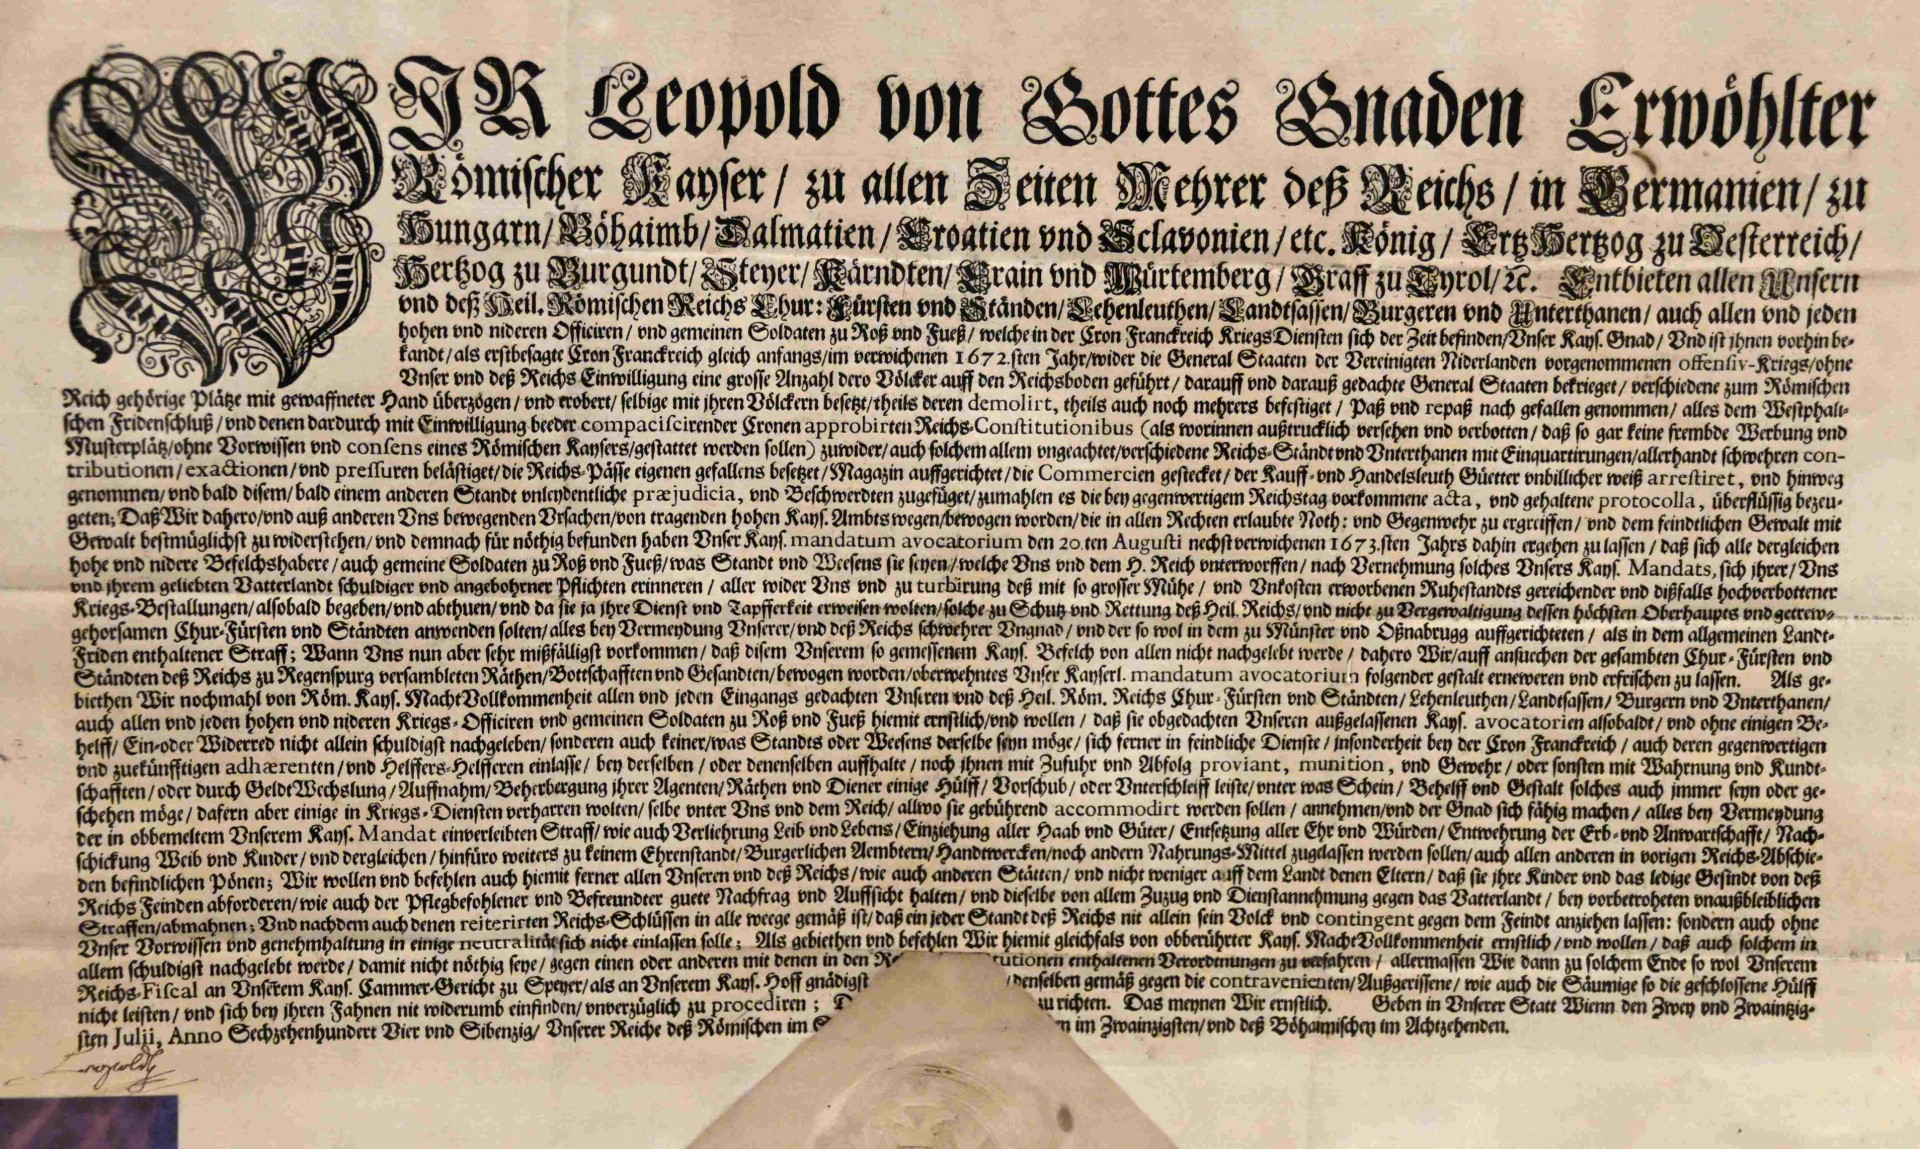 WIR Leopold von Gottes Gnaden Erwöhlter
Römischer Kayser / zu allen Zeiten Mehrer deß Reichs / in Germanien / zu
Hungarn / Böhaimb / Dalmatien / Croatien vnd Sclavonien / etc. König / Ertz Hertzog zu Oesterreich /
Hertzog zu Burgundt / Steyer / Kärndten / Crain vnd Würtemberg / Graff zu Tyrol / ꝛc. Entbieten allen Unsern
vnd deß Heil. Römischen Reichs Chur: Fürsten vnd Ständen / Lehenleuthen / Landtsassen / Burgeren vnd Unterthanen / auch allen vnd jeden
hohen vnd nideren Officiren / vnd gemeinen Soldaten zu Roß vnd Fueß / welche in der Cron Franckreich Kriegs Diensten sich der Zeit befinden / Vnser Kays. Gnad / Vnd ist jhnen vorhin be-
kandt / als erstbesagte Cron Franckreich gleich anfangs / im verwichenen 1672.sten Jahr / wider die General Staaten der Vereinigten Niderlanden vorgenommenen offensiv-Kriegs / ohne
Vnser vnd deß Reichs Einwilligung eine grosse Anzahl dero Völcker auff den Reichsboden geführt / darauff vnd darauß gedachte General Staaten bekrieget / verschiedene zum Römischen
Reich gehörige Plätze mit gewaffneter Hand überzogen / vnd erobert / selbige mit jhren Völckern besetzt / theils deren demolirt, theils auch noch mehrers befestiget / Paß vnd repaß nach gefallen genommen / alles dem Westphali-
schen Fridenschluß / vnd denen dardurch mit Einwilligung beeder compaciscirender Cronen approbirten Reichs-Constitutionibus (als worinnen außtrucklich versehen vnd verbotten / daß so gar keine frembde Werbung vnd
Musterplätz / ohne Vorwissen vnd consens eines Römischen Kaysers / gestattet werden sollen) zuwider / auch solchem allem vngeachtet / verschiedene Reichs-Ständt vnd Vnterthanen mit Einquartirungen / allerhandt schwehren con-
tributionen / exactionen / vnd pressuren belästiget / die Reichs-Pässe eigenen gefallens besetzet / Magazin auffgerichtet / die Commercien gestecket / der Kauff- vnd Handelsleuth Güetter vnbillicher weiß arrestiret, vnd hinweg
genommen / vnd bald disem / bald einem anderen Standt vnleydentliche præjudicia, vnd Beschwerdten zugefüget / zumahlen es die bey gegenwertigem Reichstag vorkommene acta, vnd gehaltene protocolla, überflüssig bezeu-
geten; Daß Wir dahero / vnd auß anderen Vns bewegenden Vrsachen / von tragenden hohen Kays. Ambts wegen / bewogen worden / die in allen Rechten erlaubte Noth: vnd Gegenwehr zu ergreiffen / vnd dem feindtlichen Gewalt mit
Gewalt bestmüglichst zu widerstehen / vnd demnach für nöthig befunden haben Vnser Kays. mandatum avocatorium den 20.ten Augusti nechst verwichenen 1673.sten Jahrs dahin ergehen zu lassen / daß sich alle dergleichen
hohe vnd nidere Befelchshabere / auch gemeine Soldaten zu Roß vnd Fueß / was Standt vnd Weesens sie seyen / welche Vns vnd dem H. Reich vnterworffen / nach Vernehmung solches Vnsers Kays. Mandats, sich jhrer / Vns
vnd jhrem geliebten Vatterlandt schuldiger vnd angebohrner Pflichten erinneren / aller wider Vns vnd zu turbirung deß mit so grosser Mühe / vnd Vnkosten erworbenen Ruhestandts gereichender vnd dißfalls hochverbottener
Kriegs-Bestallungen / alsobald begeben / vnd abthuen / vnd da sie ja jhre Dienst vnd Tapfferkeit erweisen wolten / solche zu Schutz vnd Rettung deß Heil. Reichs / vnd nicht zu Vergewaltigung dessen höchsten Oberhaupts vnd getrew-
gehorsamen Chur-Fürsten vnd Ständten anwenden solten / alles bey Vermeydung Vnserer / vnd deß Reichs schwehrer Vngnad / vnd der so wol in dem zu Münster vnd Oßnabrugg auffgerichteten / als in dem allgemeinen Landt-
Friden enthaltener Straff; Wann Vns nun aber sehr mißfälligst vorkommen / daß disem Vnserem so gemessenem Kays. Befelch von allen nicht nachgelebt werde / dahero Wir / auff ansuechen der gesambten Chur-Fürsten vnd
Ständten deß Reichs zu Regenspurg versambleten Räthen / Bottschafften vnd Gesandten / bewogen worden / oberwehntes Vnser Kayserl. mandatum avocatorium folgender gestalt erneweren vnd erfrischen zu lassen. Als ge-
biethen Wir nochmahl von Röm. Kays. Macht Vollkommenheit allen vnd jeden Eingangs gedachten Vnseren vnd deß Heil. Röm. Reichs Chur-Fürsten vnd Ständten / Lehenleuthen / Landtsassen / Burgern vnd Vnterthanen /
auch allen vnd jeden hohen vnd nideren Kriegs-Officiren vnd gemeinen Soldaten zu Roß vnd Fueß hiemit ernstlich / vnd wollen / daß sie obgedachten Vnseren außgelassenen Kays. avocatorien alsobaldt / vnd ohne einigen Be-
helff / Ein- oder Widerred nicht allein schuldigst nachgeleben / sonderen auch keiner / was Standts oder Weesens derselbe seyn möge / sich ferner in feindliche Dienste / insonderheit bey der Cron Franckreich / auch deren gegenwertigen
vnd zuekünfftigen adhærenten / vnd Helffers-Helfferen einlasse / bey derselben / oder denenselben auffhalte / noch jhnen mit Zufuhr vnd Abfolg proviant, munition, vnd Gewehr / oder sonsten mit Wahrnung vnd Kundt-
schafften / oder durch Geldt Wechslung / Auffnahm / Beherbergung jhrer Agenten / Räthen vnd Diener einige Hülff / Vorschub / oder Vnterschleiff leiste / vnter was Schein / Behelff vnd Gestalt solches auch jmmer seyn oder ge-
schehen möge / dafern aber einige in Kriegs-Diensten verharren wolten / selbe vnter Vns vnd dem Reich / allwo sie gebührend accommodirt werden sollen / annehmen / vnd der Gnad sich fähig machen / alles bey Vermeydung
der in obbemeltem Vnserem Kays. Mandat einverleibten Straff / wie auch Verliehrung Leib vnd Lebens / Einziehung aller Haab vnd Güter / Entsetzung aller Ehr vnd Würden / Entwehrung der Erb- vnd Anwartschafft / Nach-
schickung Weib vnd Kinder / vnd dergleichen / hinfüro weiters zu keinem Ehrenstandt / Burgerlichen Aembtern / Handtwercken / noch andern Nahrungs-Mittel zugelassen werden sollen / auch allen anderen in vorigen Reichs-Abschie-
den befindlichen Pönen; Wir wollen vnd befehlen auch hiemit ferner allen Vnseren vnd deß Reichs / wie auch anderen Stätten / vnd nicht weniger auff dem Landt denen Eltern / daß sie jhre Kinder vnd das ledige Gesindt von deß
Reichs Feinden abforderen / wie auch der Pflegbefohlener vnd Befreundter guete Nachfrag vnd Auffsicht halten / vnd dieselbe von allem Zuzug vnd Dienstannehmung gegen das Vatterlandt / bey vorbetroheten vnaußbleiblichen
Straffen / abmahnen; Vnd nachdem auch denen reiterirten Reichs-Schlüssen in alle weege gemäß ist / daß ein jeder Standt deß Reichs nit allein sein Volck vnd contingent gegen dem Feindt anziehen lassen: sondern auch ohne
Vnser Vorwissen vnd genehmhaltung in einige neutralität sich nicht einlassen solle; Als gebiethen vnd befehlen Wir hiemit gleichfals von obberührter Kays. Macht Vollkommenheit ernstlich / vnd wollen / daß auch solchem in
allem schuldigst nachgelebt werde / damit nicht nöthig seye / gegen einen oder anderen mit denen in den Re tutionen enthaltenen Verordtnungen zu verfahren / allermassen Wir dann zu solchem Ende so wol Vnserem
Reichs-Fiscal an Vnserem Kays. Cammer-Gericht zu Speyer / als an Vnserem Kays. Hoff gnädigst / denselben gemäß gegen die contravenienten / Außgerissene / wie auch die Säumige so die geschlossene Hülff
nicht leisten / vnd sich bey jhren Fahnen nit widerumb einfinden / vnverzüglich zu procediren; D zu richten. Das meynen Wir ernstlich. Geben in Vnserer Statt Wienn den Zwey vnd Zwaintzig-
sten Julii, Anno Sechzehenhundert Vier vnd Sibenzig / Vnserer Reiche deß Römischen im S en im Zwainzigsten / vnd deß Böhaimischen im Achtzehenden.
Leopold